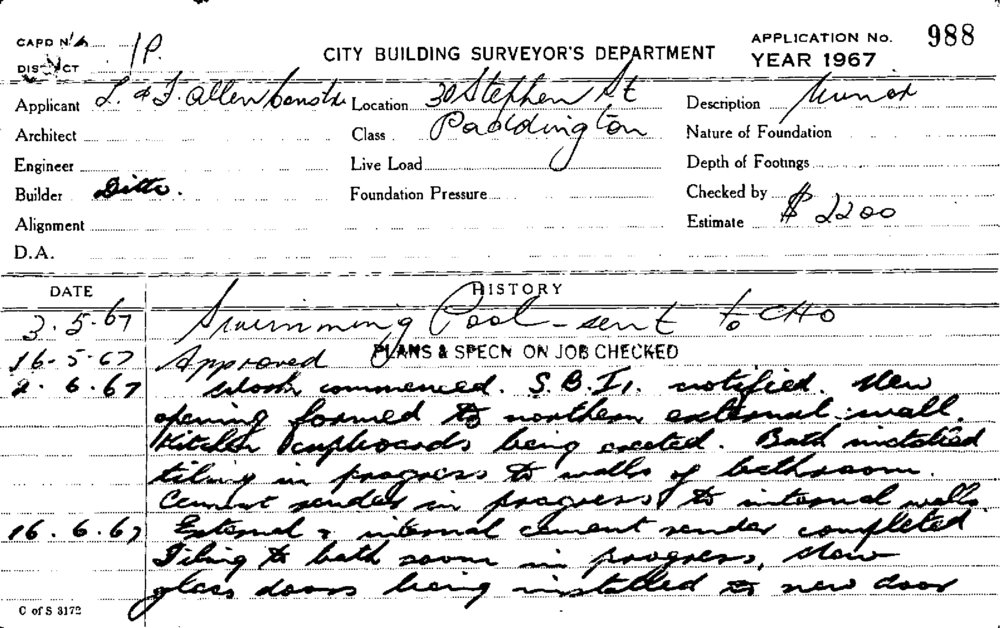 CARD No. 1P.
DISTRICT
CITY BUILDING SURVEYOR'S DEPARTMENT
APPLICATION No. 988
YEAR 1967
Applicant L. & J. Allen Constr. Location 30 Stephen St Description Minor
Architect Class Paddington Nature of Foundation
Engineer Live Load Depth of Footings
Builder Ditto. Foundation Pressure Checked by
Alignment Estimate $ 2200
D.A.
DATE HISTORY
3.5.67 Swimming Pool - sent to CHO
16-5-67 Approved PLANS & SPECN ON JOB CHECKED
2.6.67 Work commenced. S.B.I. notified. New
opening formed to northern external wall.
Kitchen cupboards being erected. Bath installed
tiling in progress to walls of bathroom.
Cement render in progress to internal walls
16.6.67 External & internal cement render completed
Tiling to bath room in progress, New
glass doors being installed to new door
C of S 3172